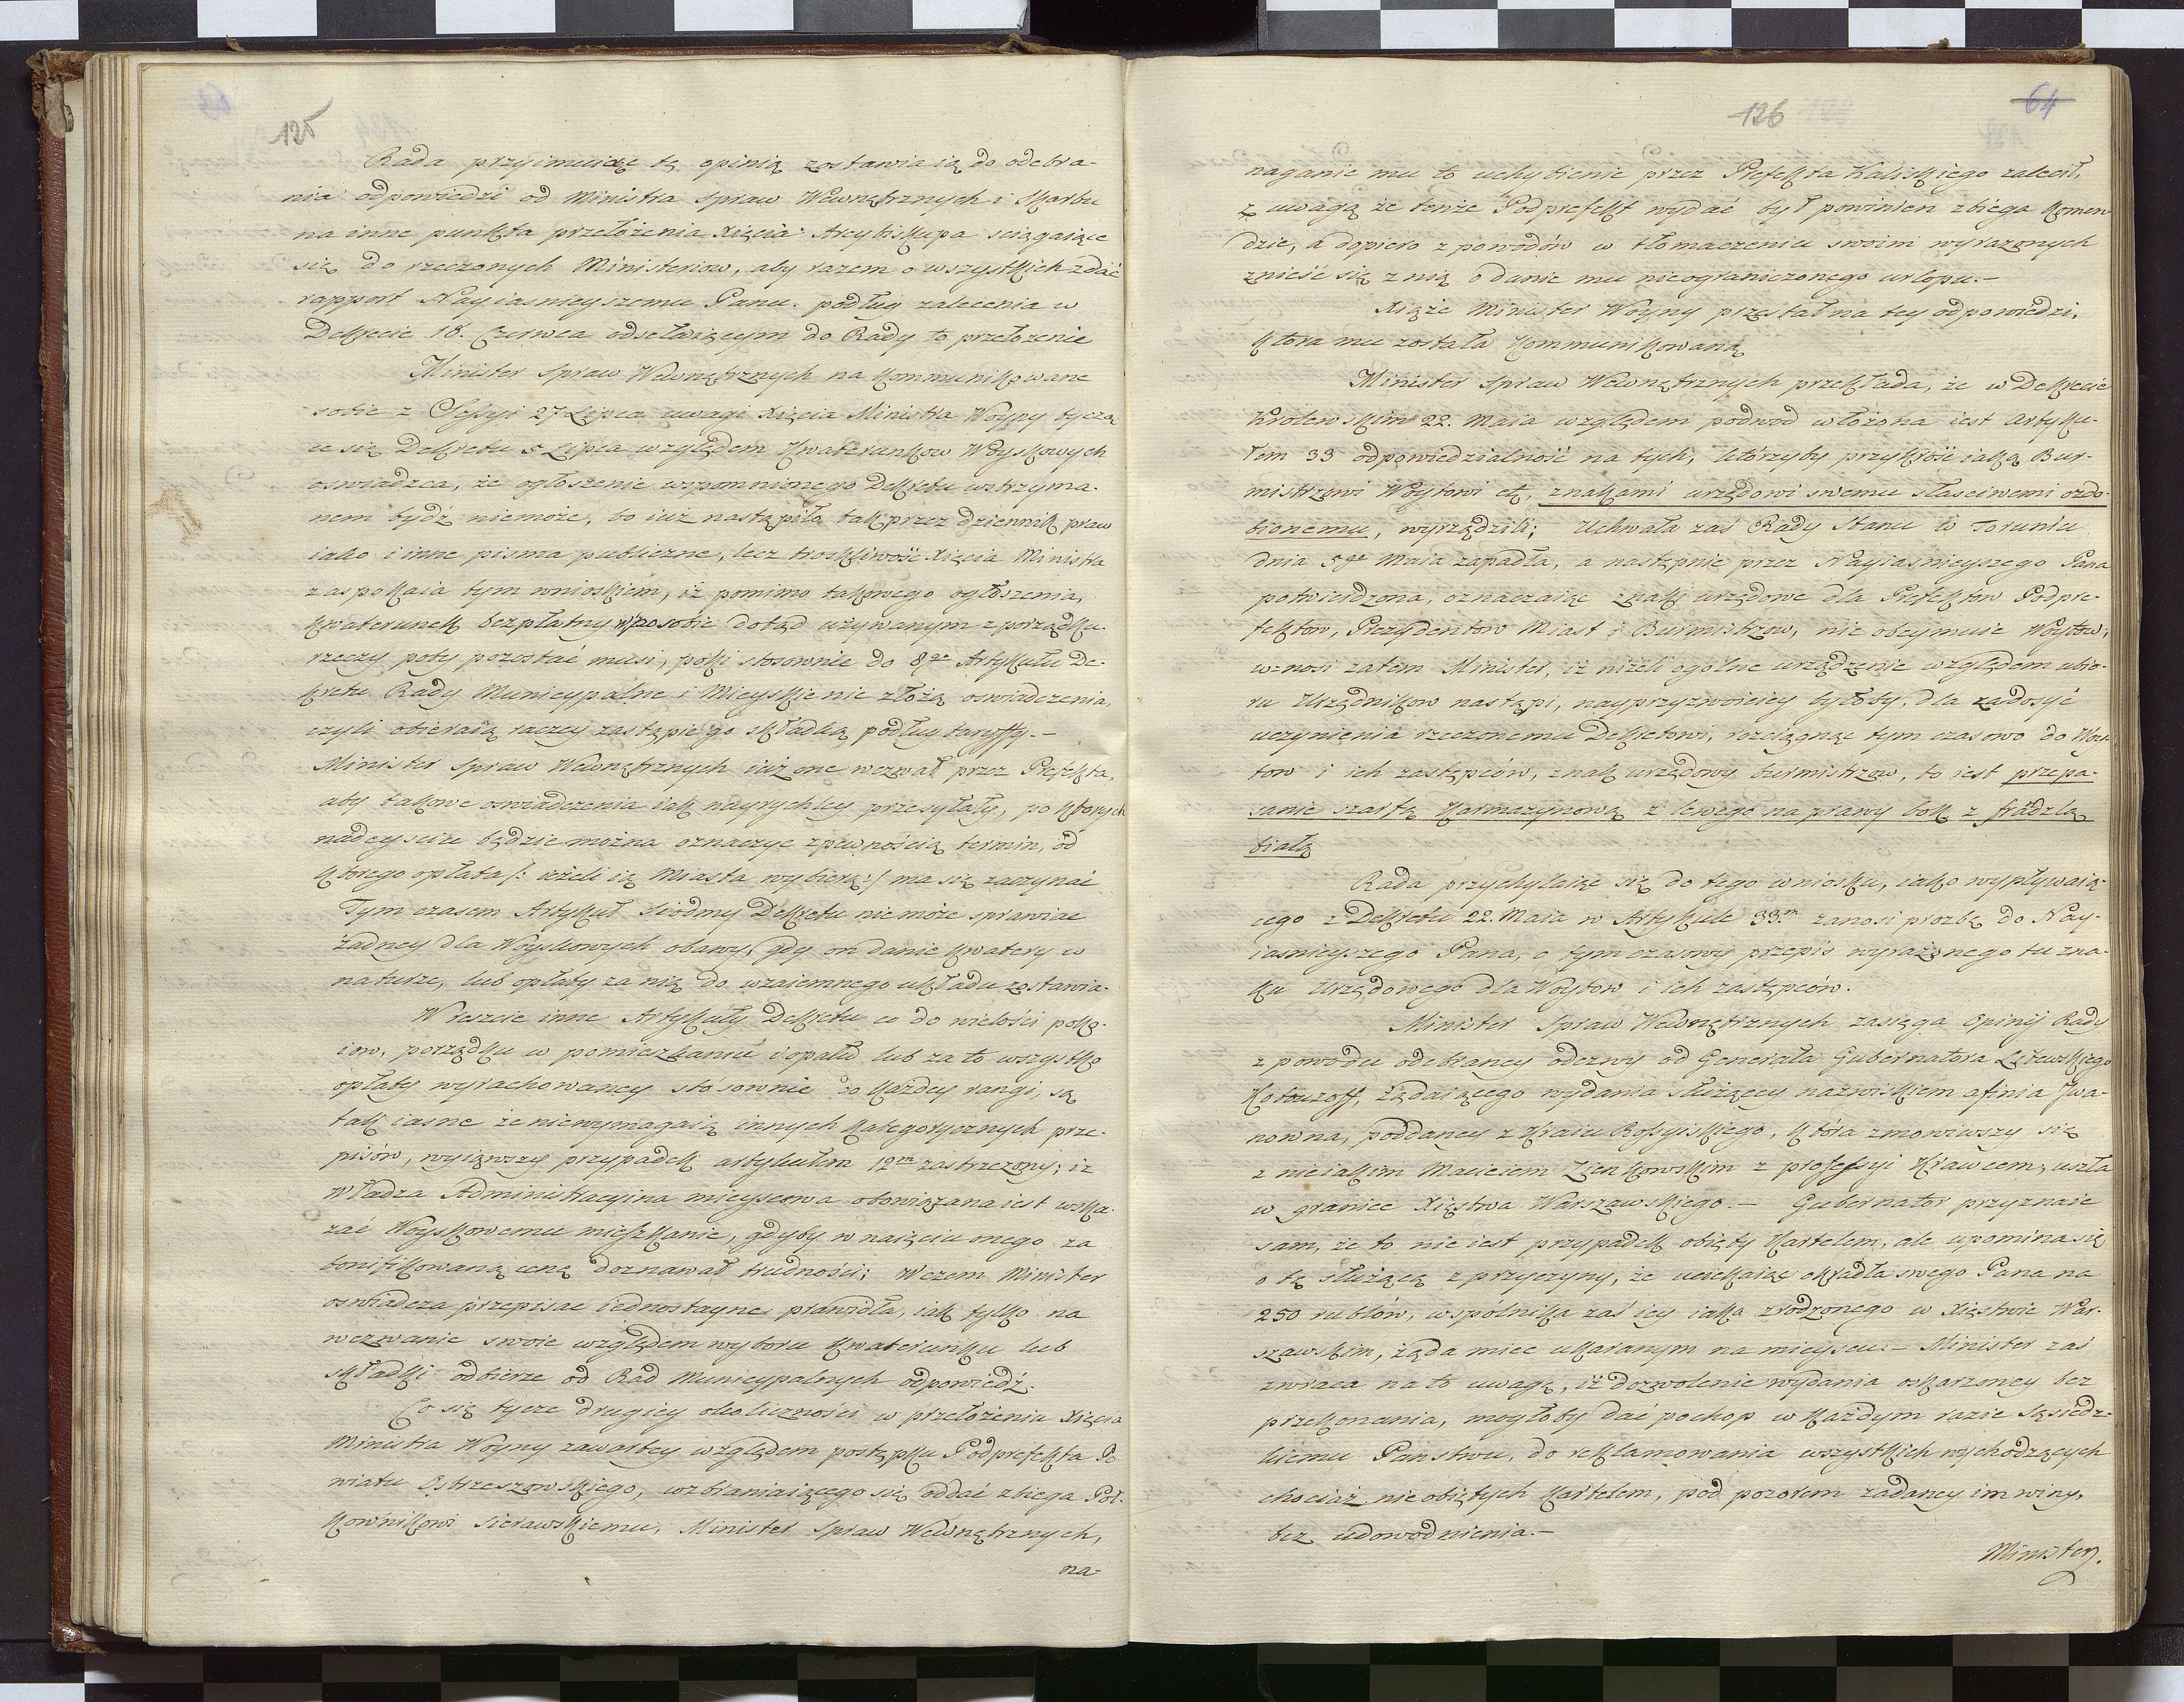 125
Rada przyimuiąc tę opinią zostawia ią do odebra-
nia odpowiedzi od Ministra Spraw Wewnętrznych i Skarbu
na inne punkta przełożenia Xięcia Arcybiskupa sciągaiące
się do rzeczonych Ministeriow, aby razem o wszystkich zdać
rapport Nayiasnieyszemu Panu podług zalecenia w
Dekrecie 18. Czerwca odsełaiącym do Rady to przełożenie
Minister Spraw Wewnętrznych na kommunikowane
sobie z Sessyi 27 Lipca uwagi Xięcia Ministra Woyny tyczą
ce się Dekretu 5 Lipca względem kwaterunkow Woyskowych
oswiadcza, że ogłoszenie wspomnionego Dekretu wstrzyma-
nem bydź niemoże, bo iuż nastąpiło tak przez dziennik praw
iako i inne pisma publiczne, lecz troskliwość Xięcia Ministra
zaspokaia tym wnioskiem, iż pomimo takowego ogłoszenia,
kwaterunek bezpłatny w sposobie dotąd używanym z porządku
rzeczy poty pozostać musi, poki stosownie do 8go Artykułu De-
kretu Rady Municypalne i Mieyskie nie złożą oswiadczenia,
czyli obieraią raczey zastąpić go składką podług taryffy.-
Minister Spraw Wewnętrznych iuż one wezwał przez Prefekta,
aby takowe oswiadczenia iak nayrychley przesyłały, po ktorych
nadeysciu będzie można oznaczyć z pewnością termin, od
ktorego opłata /: ieżeli ią Miasta wybiorą :/ ma się zaczynać
Tym czasem Artykuł siodmy Dekretu nie może sprawiać
żadney dla Woyskowych obawy, gdy on danie kwatery w
naturze, lub opłaty za nią do wzaiemnego układu zostawia-
Wreszcie inne Artykuły Dekretu co do wielości poko-
iow, porządku w pomieszkaniu i opału lub za to wszystko
opłaty wyrachowaney stósownie do każdey rangi, są
tak iasne że niewymagaią innych kategorycznych prze-
pisów, wyiąwszy przypadek artykułem 12m zastrzeżony; iż
Władza Administracyina mieyscowa obowiązana iest wska-
zać Woyskowemu mieszkanie, gdyby w naięciu onego za
bonifikowaną ceną doznawał trudności; W czem Minister
oswiadcza przepisać iednostayne prawidła, iak tylko na
wezwanie swoie względem wyboru kwaterunku lub
składki odbierze od Rad Municypalnych odpowiedź.
Co się tycze drugiey okoliczności w przełożeniu Xięcia
Ministra Woyny zawartey względem postępku Podprefekta Po-
wiatu Ostrzeszowskiego, wzbraniaiącego się oddać zbiega Puł-
kownikowi Sierawskiemu, Minister Spraw Wewnętrznych,
na-
126
64
naganie mu to uchybienie przez Prefekta Kaliskiego zalecił,
z uwagą że tenże Podprefekt wydać był powinien zbiega komen
dzie, a dopiero z powodów w tłomaczeniu swoim wyrazonych
znieść się z nią o danie mu nieograniczonego urlopu.-
Xiąże Minister Woyny przestał na tey odpowiedzi,
ktora mu została kommunikowaną
Minister Spraw Wewnętrznych przekłada, że w Dekrecie
Krolewskim 22. Maia względem podwod włożona iest Artyku-
łem 33 odpowiedzialność na tych, którzyby przykrość iaką Bur-
mistrzowi Woytowi etc, znakami urzędowi swemu własciwemi ozdo-
bionemu, wyrządzili; Uchwała zaś Rady Stanu w Toruniu
dnia 5go Maia zapadła, a następnie przez Nayiasnieyszego Pana
potwierdzona, oznaczaiąc znaki urzędowe dla Prefektow Podpre-
fektow, Prezydentow Miast i Burmistrzow, nie obeymuie Woytow;
wznosi zatem Minister, iż niżeli ogolne urządzenie względem ubio-
ru Urzędnikow nastąpi, nayprzyzwoiciey byłoby, dla zadosyć
uczynienia rzeczonemu Dekretowi, rozciągnąć tym czasowo do Woy-
tow i ich zastępców, znak urzędowy burmistrzow, to iest przepa-
sanie szarfą karmazynową z lewego na prawy bok z frędzlą
białą
Rada przychylaiąc się do tego wniosku, iako wypływaią-
cego z Dekretu 22. Maia w Artykule 33m zanosi prozbę do Nay-
iasnieyszego Pana, o tym czasowy przepis wyrażonego tu zna-
ku Urzędowego dla Woytow i ich zastępców.
Minister Spraw Wewnętrznych zasięga Opinij Rady
z powodu odebraney odezwy od Generała Gubernatora Litewskiego
Kotouzoff, żądaiącego wydania służącey nazwiskiem Afinia Jwa-
nowna, poddaney z Kraiu Rossyiskiego, która zmowiwszy się
z nieiakim Macieiem Zienkowskim z professyi krawcem, uszła
w granice Xięstwa Warszawskiego.- Gubernator przyznaie
sam, że to nie iest przypadek obięty Kartelem, ale upomina się
o tę służącą z przyczyny, że uciekaiąc okradła swego Pana na
250 rublów, wspólnika zaś iey iako zrodzonego w Xięstwie War-
szawskim, żąda mieć ukaranym na mieyscu.- Minister zaś
zwraca na to uwagę, iż dozwolenie wydania oskarzoney bez
przekonania, mogłoby dać pochop w każdym razie Sąsiedz-
kiemu Panstwu, do reklamowania wszystkich wychodzących
chociaż nie obiętych Kartelem, pod pozorem zadaney im winy,
bez udowodnienia.-
Minister.